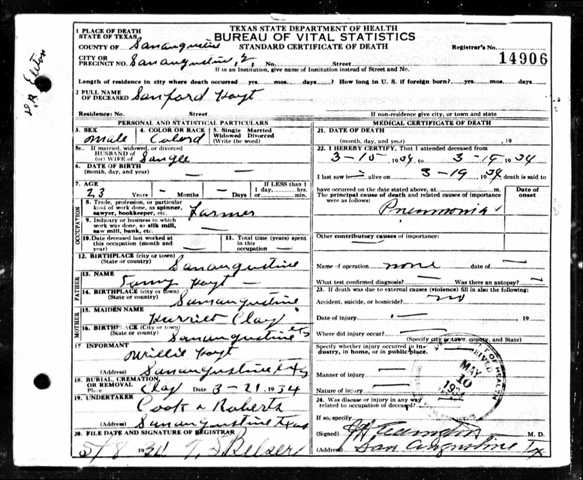 TEXAS STATE DEPARTMENT OF HEALTH
BUREAU OF VITAL STATISTICS
STANDARD CERTIFICATE OF DEATH
1 PLACE OF DEATH
STATE OF TEXAS
COUNTY OF San augustine
CITY OR
PRECINCT NO. San augustine,
Registrar's No.
14906
If in an Institution, give name of Institution instead of Street and No.
Length of residence in city where death occurred yrs. mos. days? How long in U. S. if foreign born? yrs. mos. days?
2 FULL NAME
OF DECEASED Sanford Hoyt
Residence: No. Street If nonresidence give city, or town and state
PERSONAL AND STATISTICAL PARTICULARS
3. SEX
male
4. COLOR OR RACE
Colord
5. Single Married
Widowed Divorced
(Write the word)
5a. If married, widowed or divorced
HUSBAND OF
(or) WIFE OF Single
6. DATE OF BIRTH
(month, day, and year)
7. AGE
23 Years - Months - Days
If LESS than
1 day,
hrs.
or min.
OCCUPATION
8. Trade, profession, or particular
kind of work done, as spinner,
sawyer, bookkeeper, etc. Farmer
9. Industry or business in which
work was done, as silk mill,
saw mill, bank, etc.
10. Date deceased last worked at
this occupation (month and
year)
11. Total time (years)
spent in this
occupation
12. BIRTHPLACE (city or town)
(State or country) Sanaugustine
FATHER
13. NAME
Hoyt
14. BIRTHPLACE (City or town)
(State or country) Sanaugustine
MOTHER
15. MAIDEN
NAME Harriet Clay
16. BIRTHPLACE (City or town)
(State or country) Sanaugustine
17 INFORMANT
Willie Hoyt
(Address) Sanaugustine Tex
18. BURIAL, CREMATION,
OR REMOVAL
Place Clay Date 3-21 1934
19. UNDERTAKER
Cook & Roberts
(Address) Sanaugustine Texas
20. FILE DATE AND SIGNATURE OF REGISTRAR
5/8 1934
MEDICAL CERTIFICATE OF DEATH
21. DATE OF DEATH
(month, day, and year) , 19
22. I HEREBY CERTIFY, That I attended deceased from
3-15 1934 to 3-19 1934
I last saw alive on 3-19 1934 death is said to
have occurred on the date stated above, at m.
The principal cause of death and related causes of importance
were as follows:
Date of
onset
Pneumonia
Other contributory causes of importance:
Name of operation none Date of
What test confirmed diagnosis? Was there an autopsy?
23. If death was due to external causes (violence) fill in also the following:
Accident, suicide, or homicide? no
Date of injury 19
Where did injury occur?
(Specify city or town, county and State)
Specify whether injury occurred in industry, in home, or in public place.
Manner of injury
Nature of injury
24. Was disease or injury in any way
related to occupation of deceased?
If so, specify
(Signed) M. D.
(Address) San Augustine Tx
MAY
10
1934